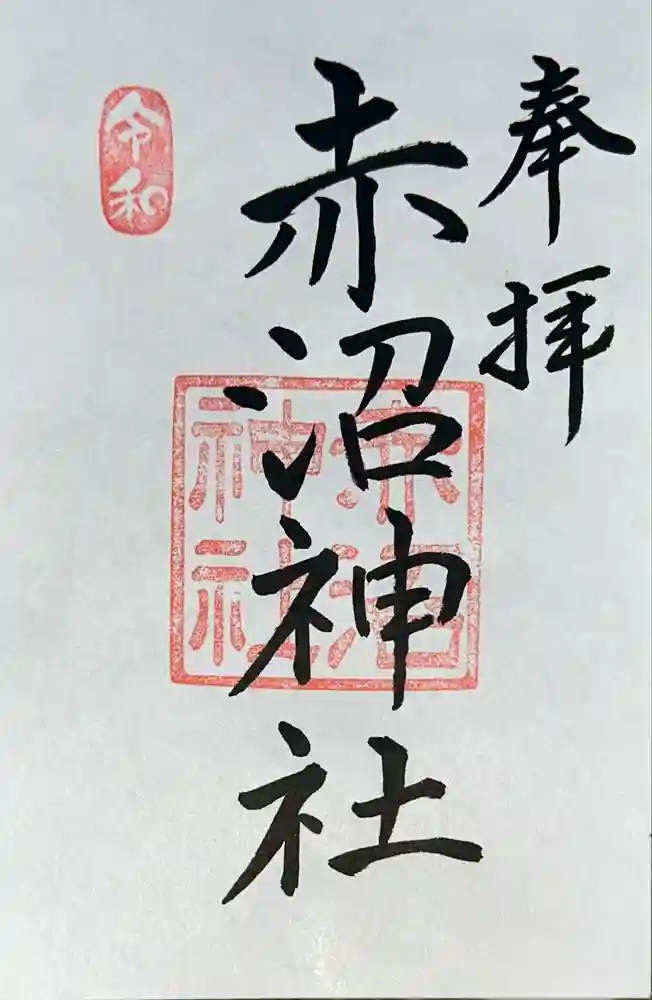 奉拝
赤沼神社
赤沼
神社
令和